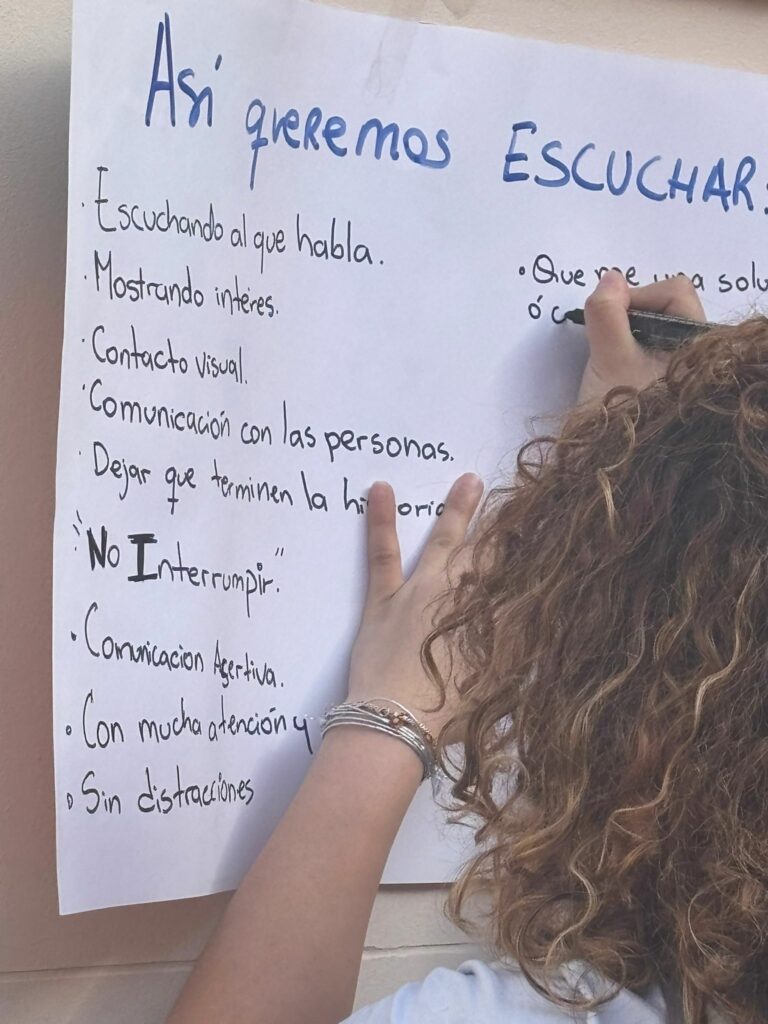 Así queremos ESCUCHAR:
· Escuchando al que habla.
· Mostrando interes.
· Contacto visual.
· Comunicación con las personas.
· Dejar que terminen la
"No Interrumpir."
• Comunicacion Asertiva.
• Con mucha atención y
• Sin distracciones
• Que una
ó